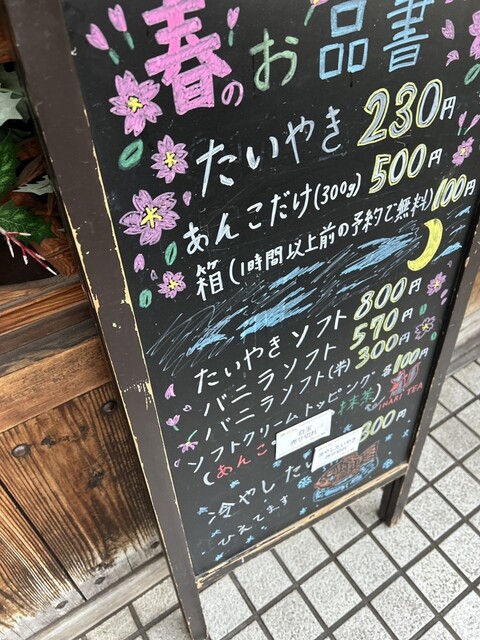 春のお品書
たいやき 230円
あんこだけ(300g) 500円
箱(1時間以上前の予約で無料) 100円
たいやきソフト 800円
バニラソフト 570円
バニラソフト(半) 300円
ソフトクリームトッピング各100円
(あんこ 白玉 売り切れ 抹茶)
冷やしたい 300円
ひえてます